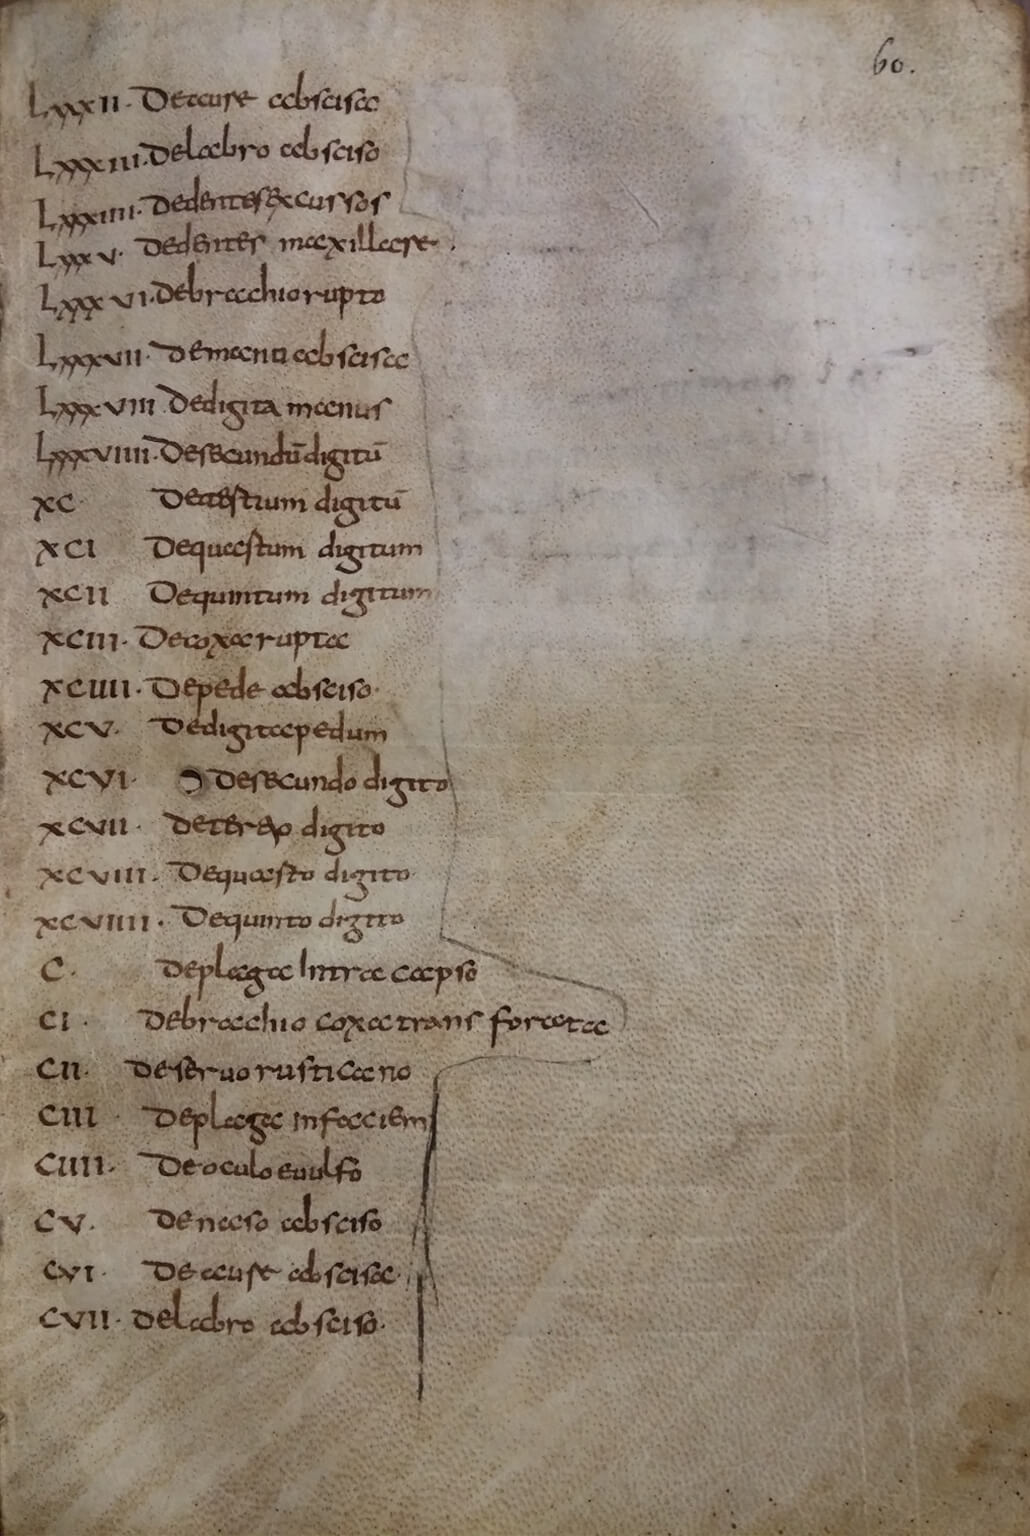 60.
Lxxxii· De aure abscisa
Lxxxiii· De labro absciso
Lxxxiiii· De dentes excussos
Lxxxv· De dentes maxillare·
Lxxxvi· De brachio rupto
Lxxxvii· De manu abscisa
Lxxxviii De digita manus
Lxxxviiii· De secundū digitū
xc De tertium digitū
xci De quartum digitum
xcii De quintum digitum
xciii· De coxa rupta
xciiii· De pede absciso·
xcv· De digita pedum
xcvi· De secundo digito
xcvii· De tertio digito
xcviii· De quarto digito
xcviiii· De quinto digito
c· De plaga intra capso
ci· De brachio coxa trans forata
cii· De servo rusticano
ciii· De plaga in faciem
ciiii· De oculo evulso
cv· De naso absciso
cvi· De aure abscisa·
cvii· De labro absciso·